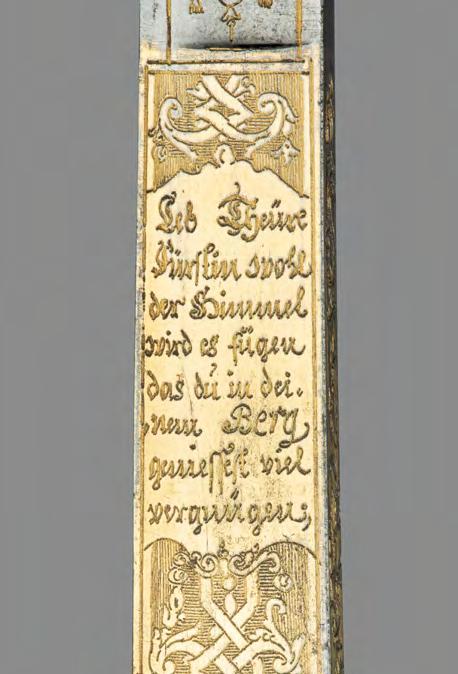 Leb Theüre
Fürstin wohl
der Himmel
wird es fügen
das du in dei-
nem Berg
geniessest viel
vergnügen;